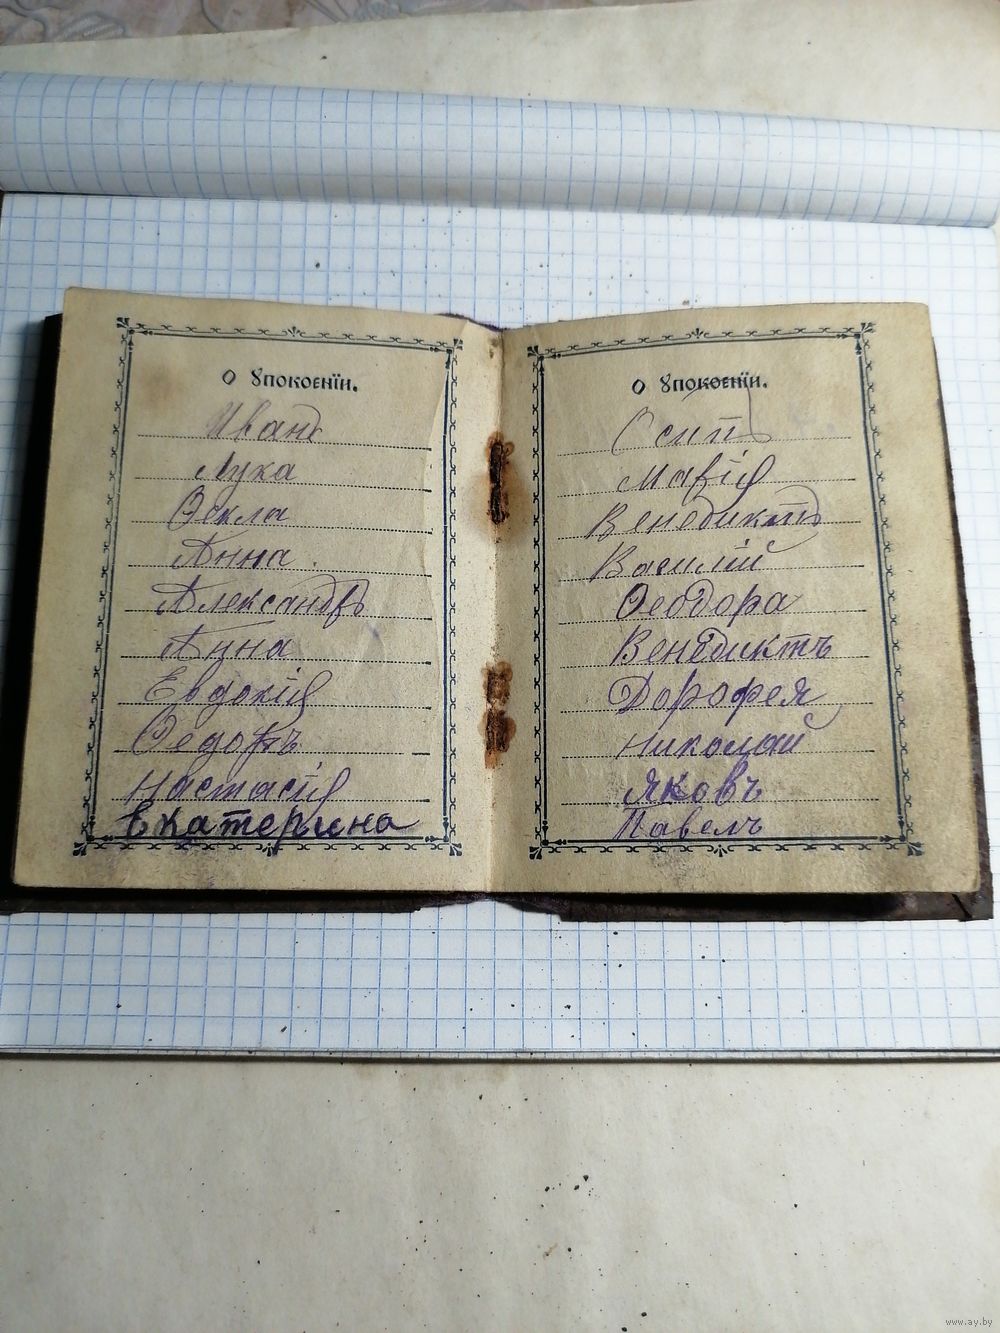 О Упокоенїи.
Иванъ
Лука
Ѳекла
Анна.
Александръ
Анна
Евдокія
Ѳедоръ
Настасія
Екатерина
О Упокоенїи.
Осипъ
Марія
Венедиктъ
Василій
Ѳеодора
Венедиктъ
Дорофея
Николай
Яковъ
Павелъ
www.ay.by